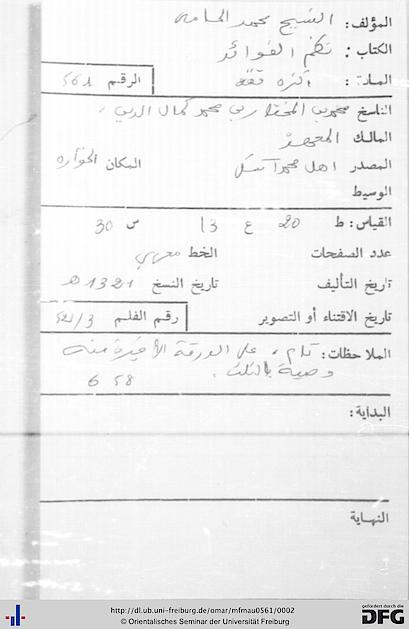 المؤلف: الشيخ محمد المامي
الكتاب: نظم الفوائد
المادة: أكثره فقه الرقم 561
الناسخ محمد بن المختار بن محمد كمال الدين
المالك المعهد
المصدر اهل محمد المكان
الوسيط
القياس: ط 20 ع 13 س 30
عدد الصفحات الخط مغربي
تاريخ التأليف تاريخ النسخ 1321 هـ
تاريخ الاقتناء أو التصوير رقم الفلم /3
الملاحظات: تام، على الورقة الأخيرة منه
وصية بالثلث. 658
البداية:
النهاية
http://dl.ub.uni-freiburg.de/omar/mfmau0561/0002
© Orientalisches Seminar der Universität Freiburg
gefördert durch die
DFG